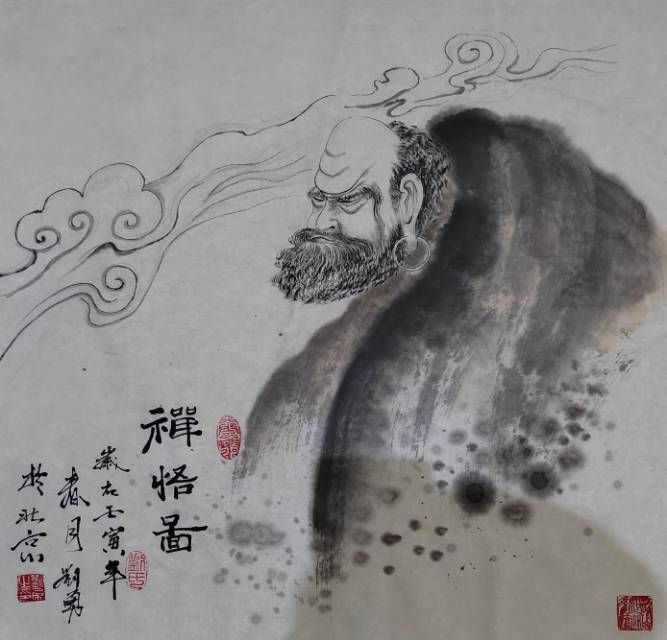 禪悟圖
歲在壬寅年
春月劉勇
於北京